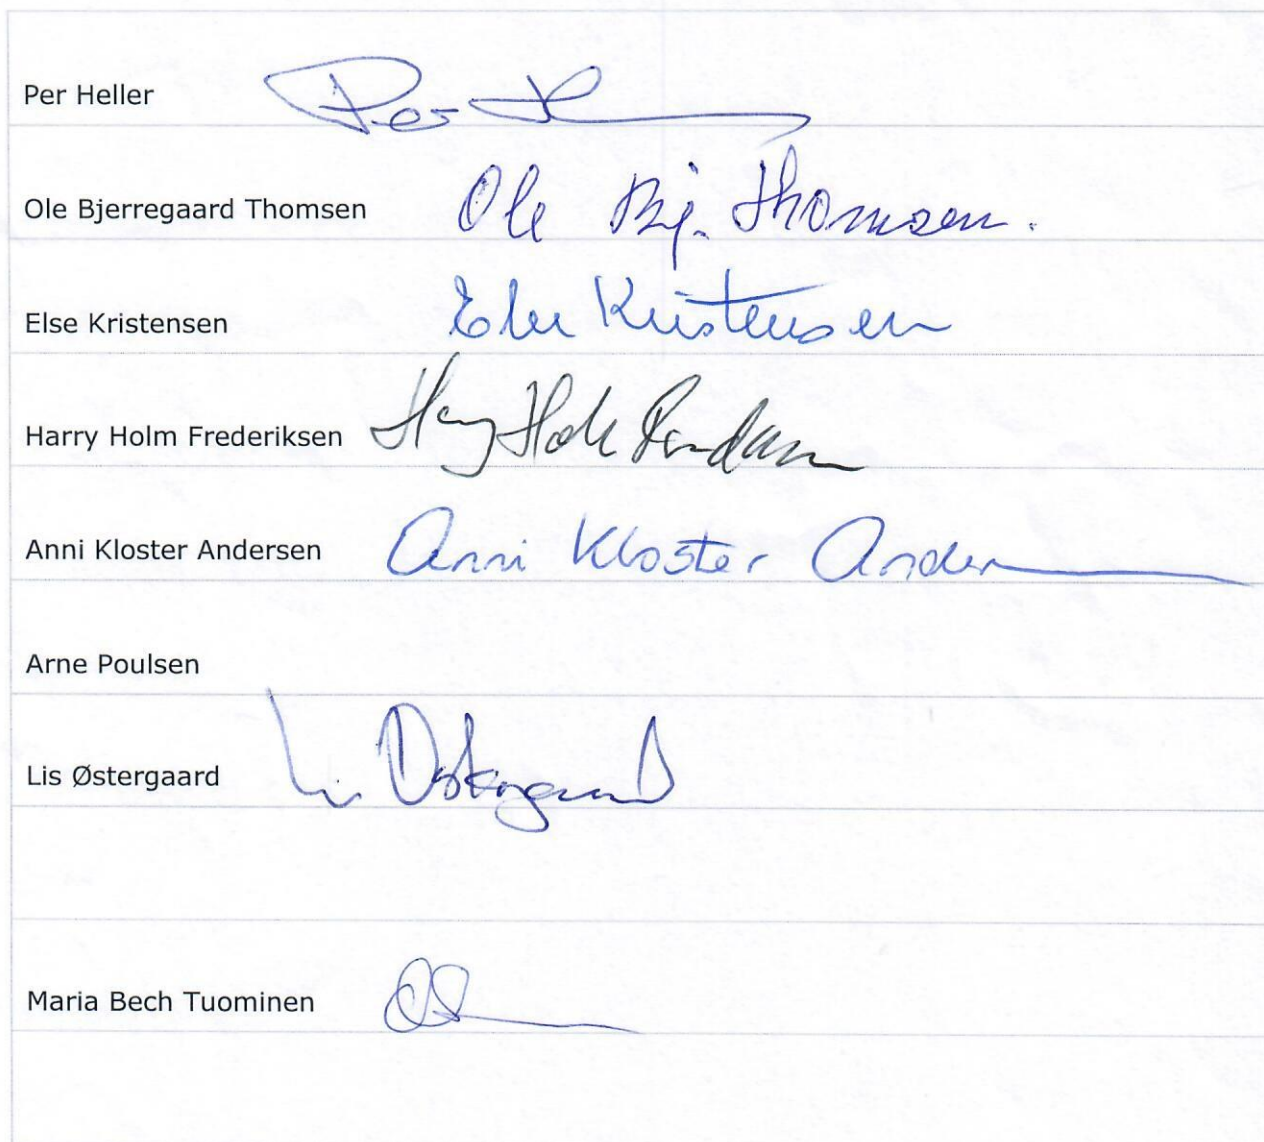 Per Heller Per H
Ole Bjerregaard Thomsen Ole Bj. Thomsen.
Else Kristensen Else Kristensen
Harry Holm Frederiksen Harry Holm
Anni Kloster Andersen Anni Kloster Ander
Arne Poulsen
Lis Østergaard Lis Østergaard
Maria Bech Tuominen